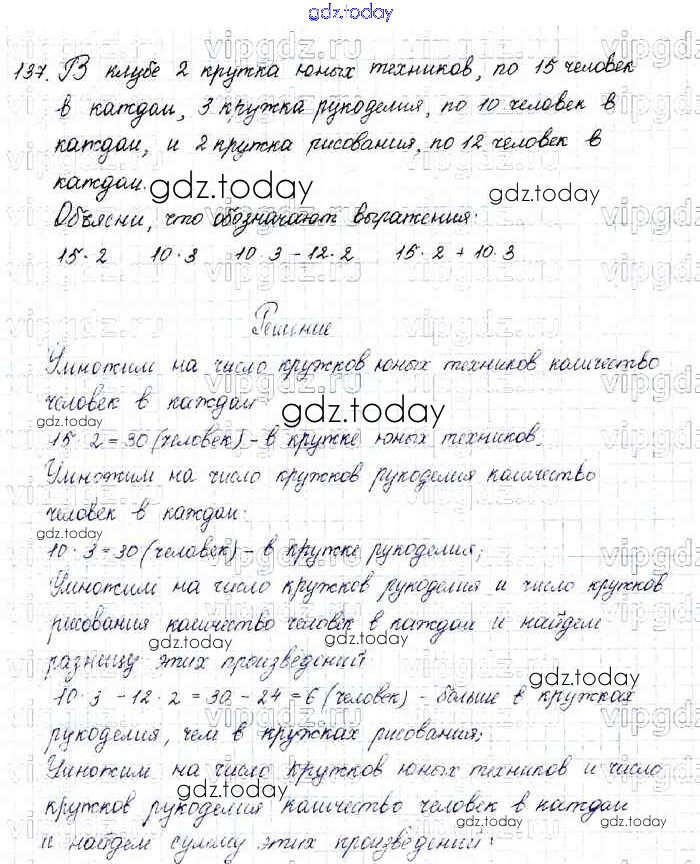 gdz.today
137. В клубе 2 кружка юных техников, по 15 человек
в каждом, 3 кружка рукоделия, по 10 человек в
каждом, и 2 кружка рисования, по 12 человек в
каждом.
gdz.today gdz.today
Объясни, что обозначают выражения:
15 · 2 10 · 3 10 · 3 - 12 · 2 15 · 2 + 10 · 3
Решение
Умножим на число кружков юных техников количество
человек в каждом:
gdz.today gdz.today
15 · 2 = 30 (человек) - в кружке юных техников.
Умножим на число кружков рукоделия количество
человек в каждом:
gdz.today
10 · 3 = 30 (человек) - в кружке рукоделия;
Умножим на число кружков рукоделия и число кружков
рисования количество человек в каждом и найдем
gdz.today gdz.today
разницу этих произведений:
gdz.today
10 · 3 - 12 · 2 = 30 - 24 = 6 (человек) - больше в кружках
рукоделия, чем в кружках рисования;
Умножим на число кружков юных техников и число
gdz.today
кружков рукоделия количество человек в каждом
gdz.today
и найдем сумму этих произведений: